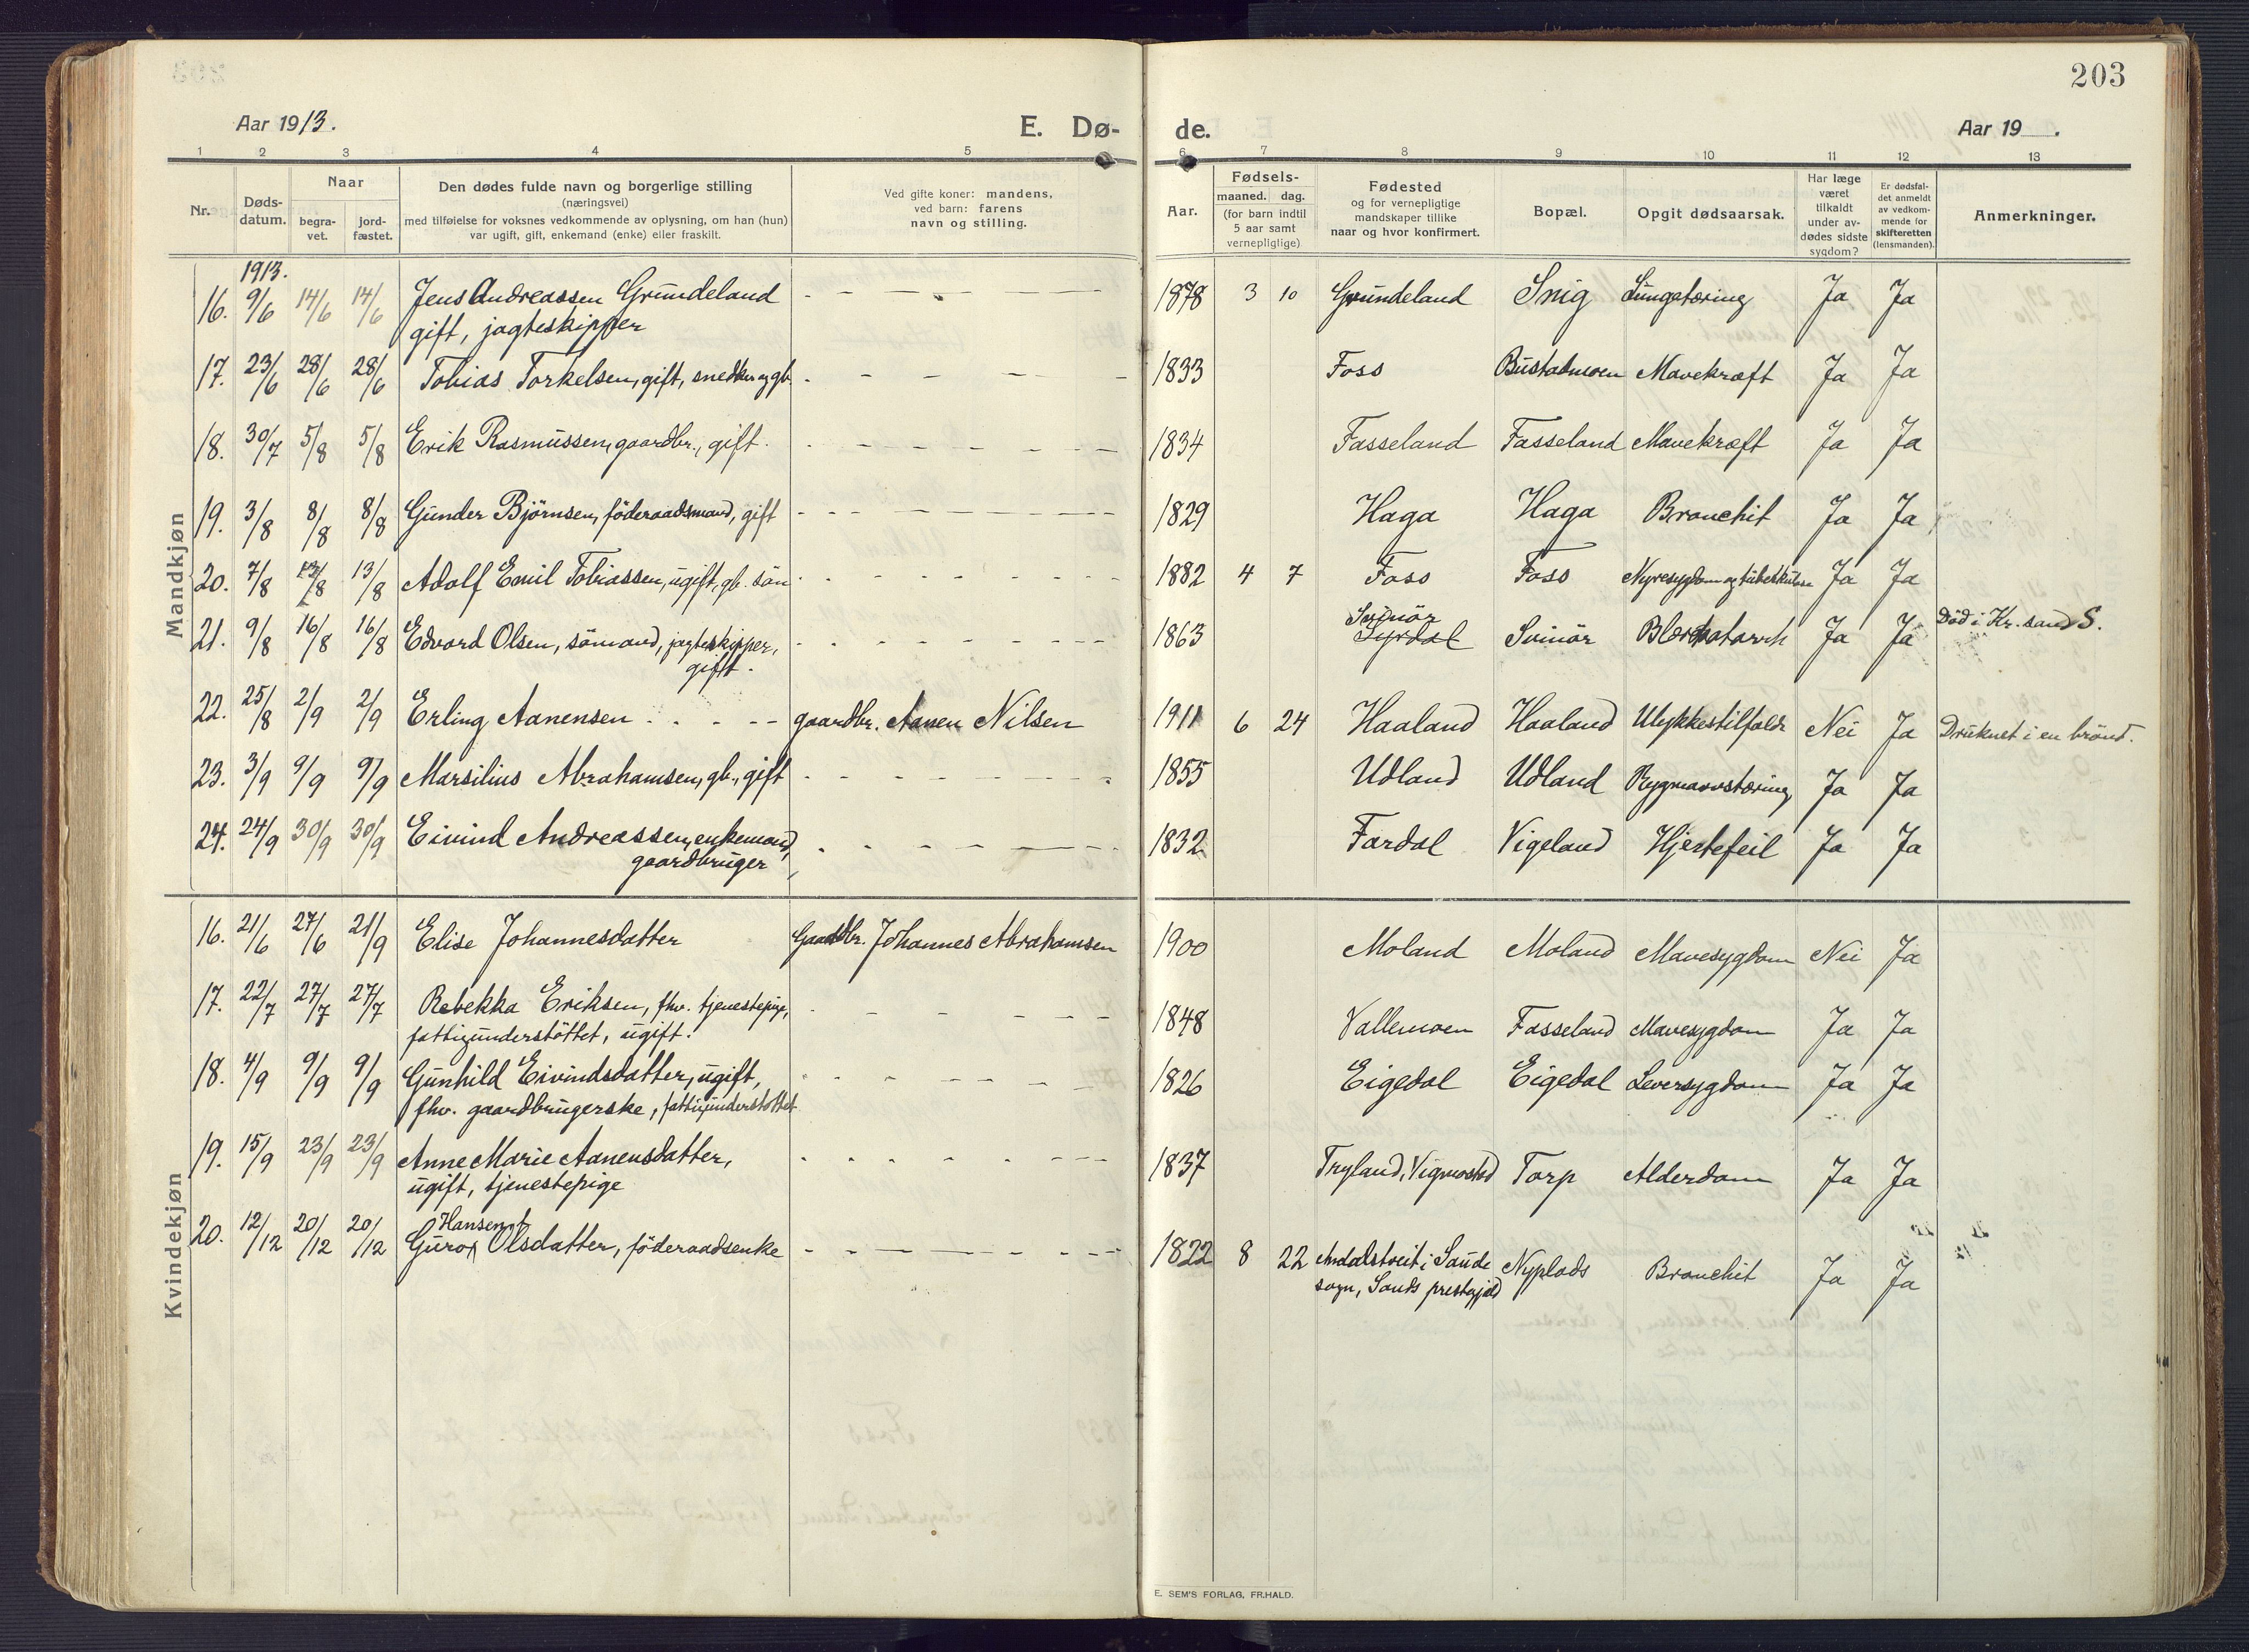 203
Aar 1913.
E. Dø-
de.
Aar 19 .
1 2 3 4 5 6 7 8 9 10 11 12 13
Nr.
Døds-
datum.
Naar
begra-
vet.
jord-
fæstet.
Den dødes fulde navn og borgerlige stilling
(næringsvei)
med tilføielse for voksnes vedkommende av oplysning, om han (hun)
var ugift, gift, enkemand (enke) eller fraskilt.
Ved gifte koner: mandens,
ved barn: farens
navn og stilling.
Aar.
Fødsels-
maaned. dag.
(for barn indtil
5 aar samt
vernepligtige)
Fødested
og for vernepligtige
mandskaper tillike
naar og hvor konfirmert.
Bopæl.
Opgit dødsaarsak.
Har læge
været
tilkaldt
under av-
dødes sidste
sygdom?
Er dødsfal-
det anmeldt
av vedkom-
mende for
skifteretten
(lensmanden).
Anmerkninger.
Mandkjøn
1913.
16. 9/6 14/6 14/6 Jens Andreassen Grundeland 1878 3 10 Grundeland Snig Lungetæring Ja Ja
gift, jagteskipper
17. 23/6 28/6 28/6 Tobias Torkelsen, gift, snedker og gb. 1833 Foss Bustadmoen Mavekræft Ja Ja
18. 30/7 5/8 5/8 Erik Rasmussen, gaardbr., gift. 1834 Fasseland Fasseland Mavekræft Ja Ja
19. 3/8 8/8 8/8 Gunder Bjørnsen, föderaadsmand, gift 1829 Haga Haga Bronchit Ja Ja
20. 7/8 13/8 13/8 Adolf Emil Tobiassen, ugift, gb. sön 1882 4 7 Foss Foss Nyresygdom og tuberkulose Ja Ja
21. 9/8 16/8 16/8 Edvard Olsen, sömand, jagteskipper, 1863 Svinör Lyrdal Svinör Blærekatarrh Ja Ja Död i Kr.sand S.
gift.
22. 25/8 2/9 2/9 Erling Aanensen gaardbr. Aanen Nilsen 1911 6 24 Haaland Haaland Ulykkestilfælde Nei Ja Druknet i en brönd.
23. 3/9 9/9 9/9 Marsilius Abrahamsen, gb., gift 1855 Udland Udland Rygmarvstæring Ja Ja
24. 24/9 30/9 30/9 Eivind Andreassen, enkemand, 1832 Fardal Vigeland Hjertefeil Ja Ja
gaardbruger
Kvindekjøn
16. 21/6 27/6 21/9 Elise Johannesdatter Gaardbr. Johannes Abrahamsen 1900 Moland Moland Mavesygdom Nei Ja
17. 22/7 27/7 27/7 Rebekka Eriksen, fhv. tjenestepige, 1848 Vallemoen Fasseland Mavesygdom Ja Ja
fattigunderstöttet, ugift.
18. 4/9 9/9 9/9 Gunhild Eivindsdatter, ugift, 1826 Eigedal Eigedal Leversygdom Ja Ja
fhv. gaardbrugerske, fattigunderstöttet
19. 15/9 23/9 23/9 Anne Marie Aanensdatter, 1837 Tryland, Vigmosted Torp Alderdom Ja Ja
ugift, tjenestepige
Hansen f.
20. 12/12 20/12 20/12 Guro Olsdatter, föderaadsenke 1822 8 22 Aadalstveit i Saude Nyplads Bronchit Ja Ja
sogn, Sands prestegjæld
E. SEM'S FORLAG, FR.HALD.